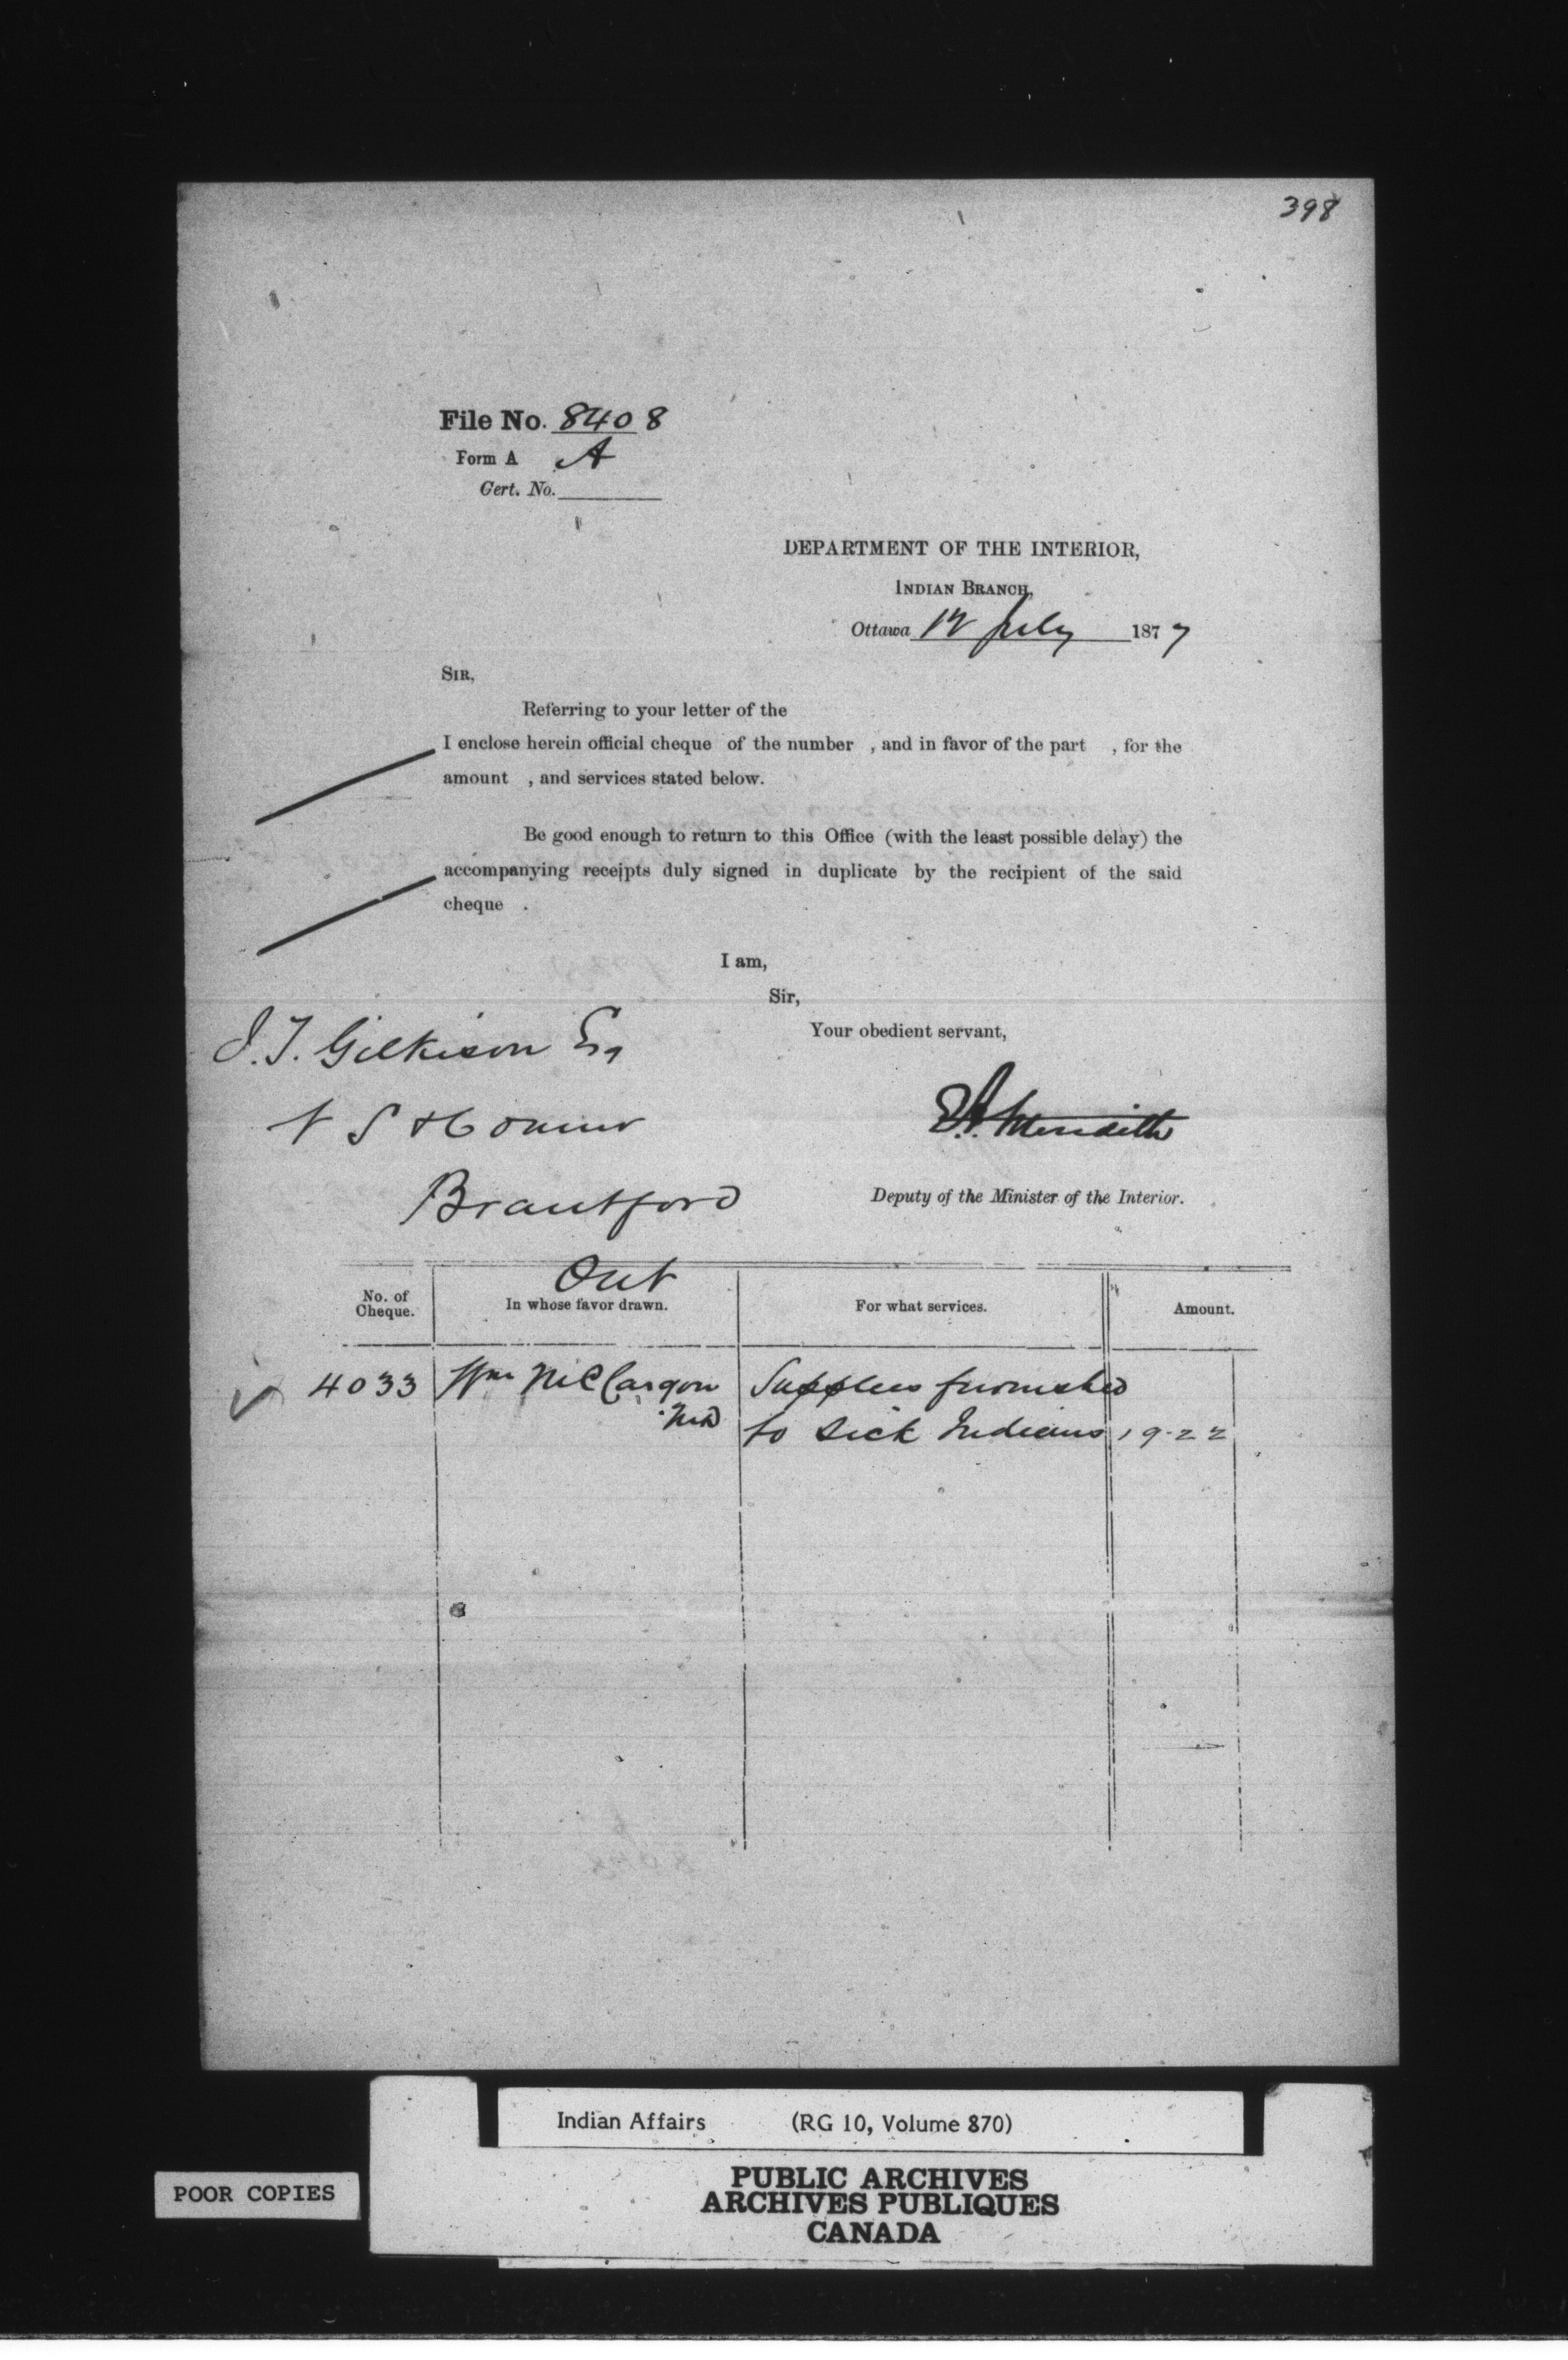 398
File No. 8408
Form A A
Cert. No.
DEPARTMENT OF THE INTERIOR,
INDIAN BRANCH,
Ottawa 12 July 1877
SIR,
Referring to your letter of the
I enclose herein official cheque of the number , and in favor of the part , for the
amount , and services stated below.
Be good enough to return to this Office (with the least possible delay) the
accompanying receipts duly signed in duplicate by the recipient of the said
cheque .
I am,
Sir,
Your obedient servant,
J. T. Gilkison Esq
Brantford
E. A. Meredith
Deputy of the Minister of the Interior.
Out
No. of Cheque. In whose favor drawn. For what services. Amount.
4033 Wm McCargow Supplies furnished
MD to Sick Indians 19.22
Indian Affairs (RG 10, Volume 870)
POOR COPIES
PUBLIC ARCHIVES
ARCHIVES PUBLIQUES
CANADA